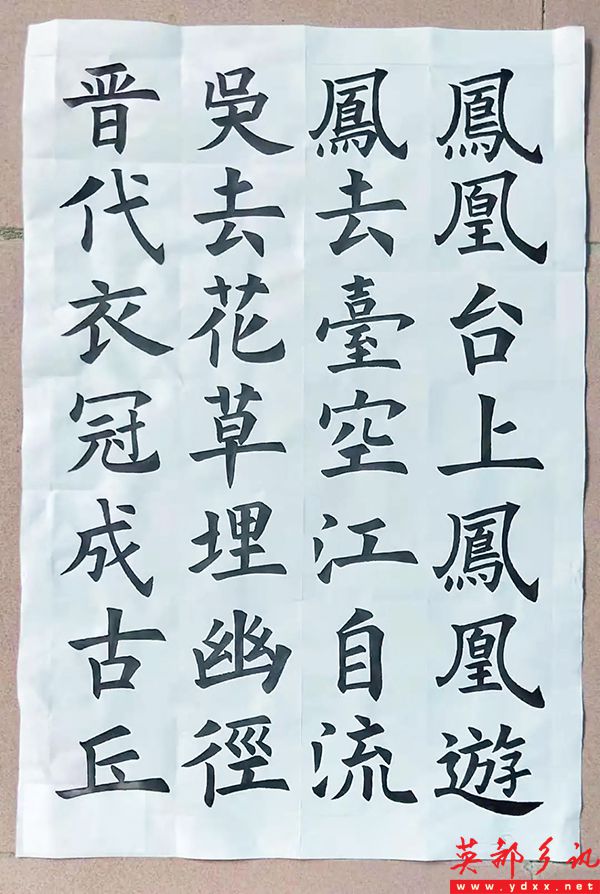 鳳凰台上鳳凰遊
鳳去臺空江自流
吳去花草埋幽徑
晋代衣冠成古丘
英都乡讯
www.ydxx.net